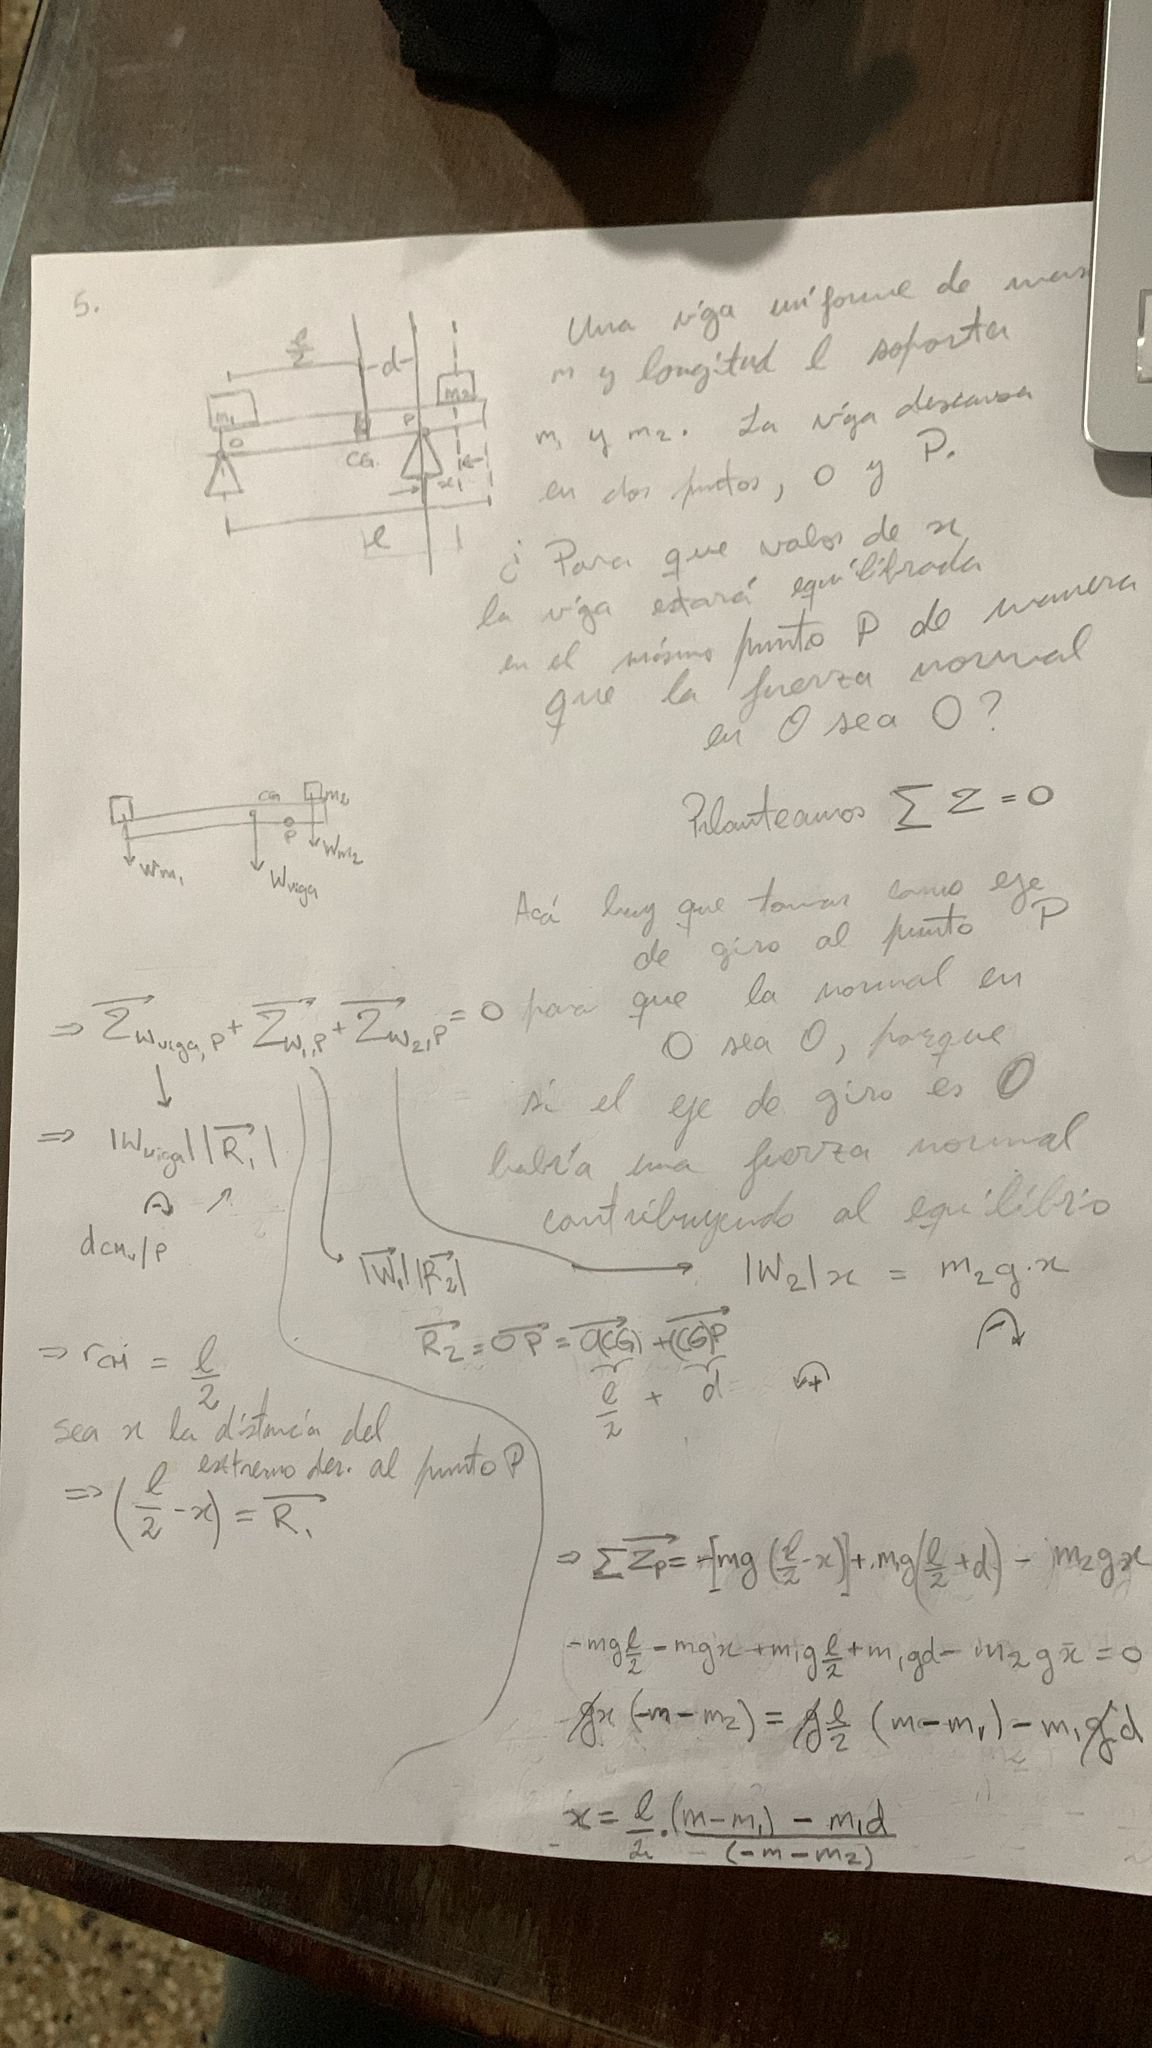 5.
l/2
d
m₁
m₂
O
P
CG.
x
l
Una viga uniforme de
m y longitud l soporta
m₁ y m₂. La viga descansa
en dos puntos, O y P.
¿Para que valor de x
la viga estará equilibrada
en el mismo punto P de manera
que la fuerza normal
en O sea 0?
CG
m₂
P
Wm₁
Wviga
Wm₂
Planteamos ∑ Z = 0
Acá hay que tomar como eje
de giro al punto P
para que la normal en
O sea 0, porque
si el eje de giro es O
habría una fuerza normal
contribuyendo al equilibrio
⇒ Z⃗Wviga,P + Z⃗W₁,P + Z⃗W₂,P = 0
⇒ |Wviga| |R⃗₁|
|W⃗₁| |R⃗₂|
|W₂| x = m₂g.x
R⃗₂ = OP⃗ = O(CG)⃗ + (CG)P⃗
l/2 + d
+
⇒ rCM = l/2
sea x la distancia del
extremo der. al punto P
⇒ (l/2 - x) = R⃗₁
⇒ ∑Z⃗P = -[mg(l/2 - x)] + m₁g(l/2 + d) - m₂gx
-mg l/2 - mgx + m₁g l/2 + m₁gd - m₂gx = 0
gx (-m - m₂) = g l/2 (m - m₁) - m₁gd
x = l/2 . (m - m₁) - m₁d / (-m - m₂)